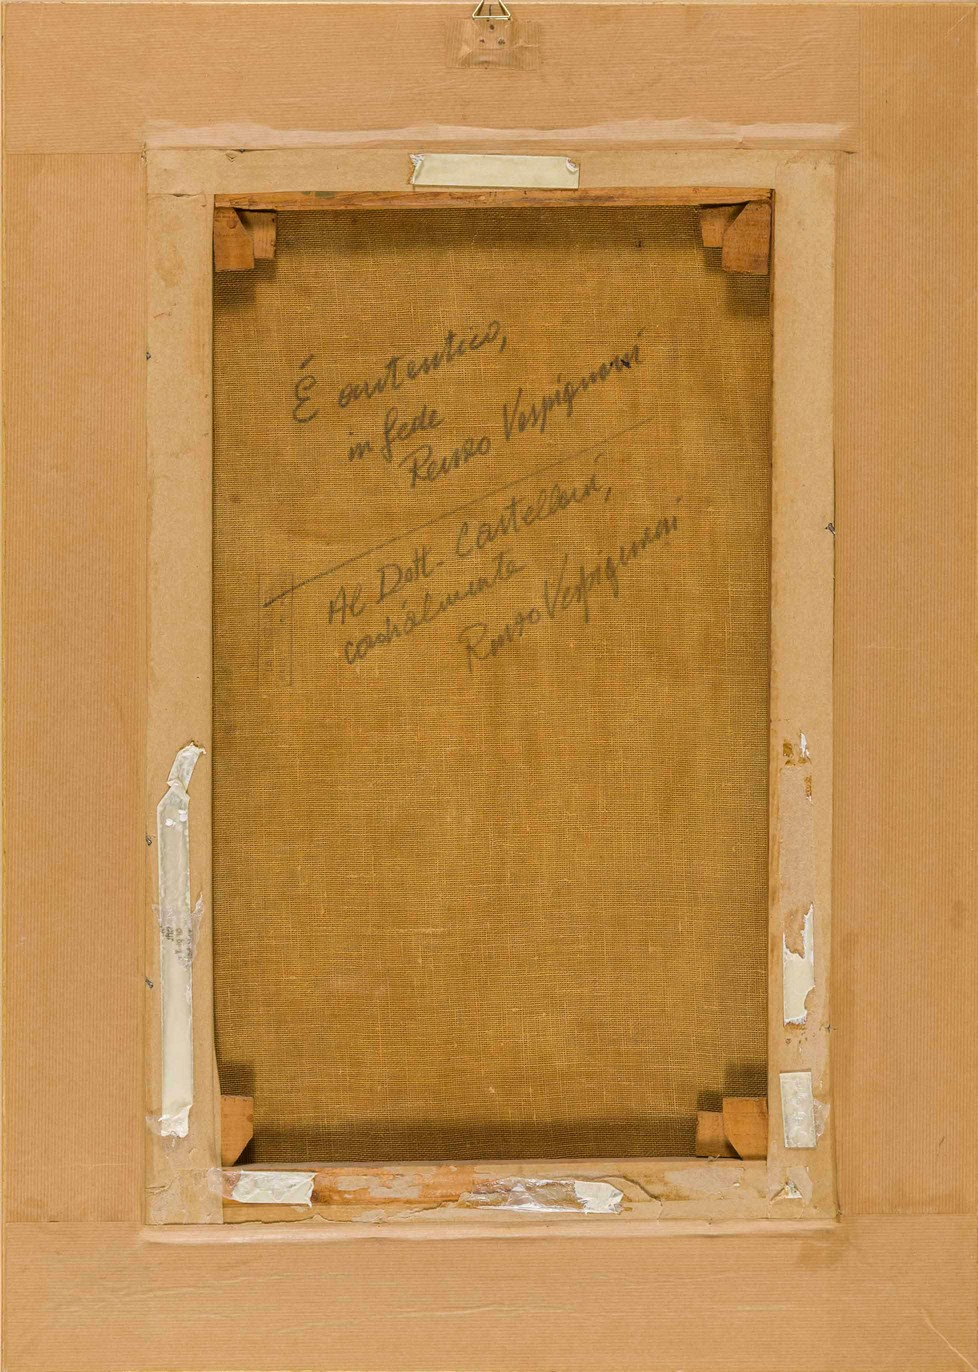 É autentico,
in fede
Renzo Vespignani
Al Dott. Castellani,
cordialmente
Renzo Vespignani